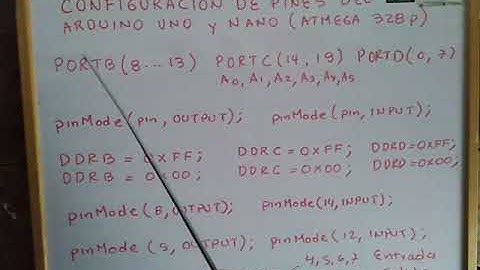 CONFIGURACION DE PINES DEL
ARDUINO UNO y NANO (ATMEGA 328P)
PORTB (8...13) PORTC (14, 19) PORTD (0, 7)
A0, A1, A2, A3, A4, A5
pinMode (pin, OUTPUT); pinMode (pin, INPUT);
DDRB = 0XFF; DDRC = 0XFF; DDRD = 0XFF;
DDRB = 0X00; DDRC = 0X00; DDRD = 0X00;
pinMode (8, OUTPUT); pinMode (14, INPUT);
pinMode (5, OUTPUT); pinMode (12, INPUT);
4, 5, 6, 7 Entrada